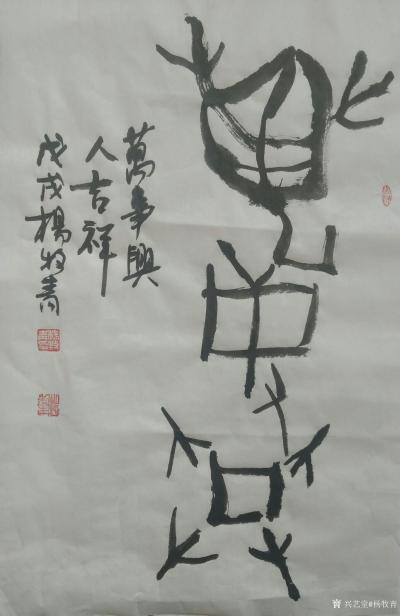 萬事興
萬事興
人吉祥
戊戌楊牧青
兴艺堂@杨牧青